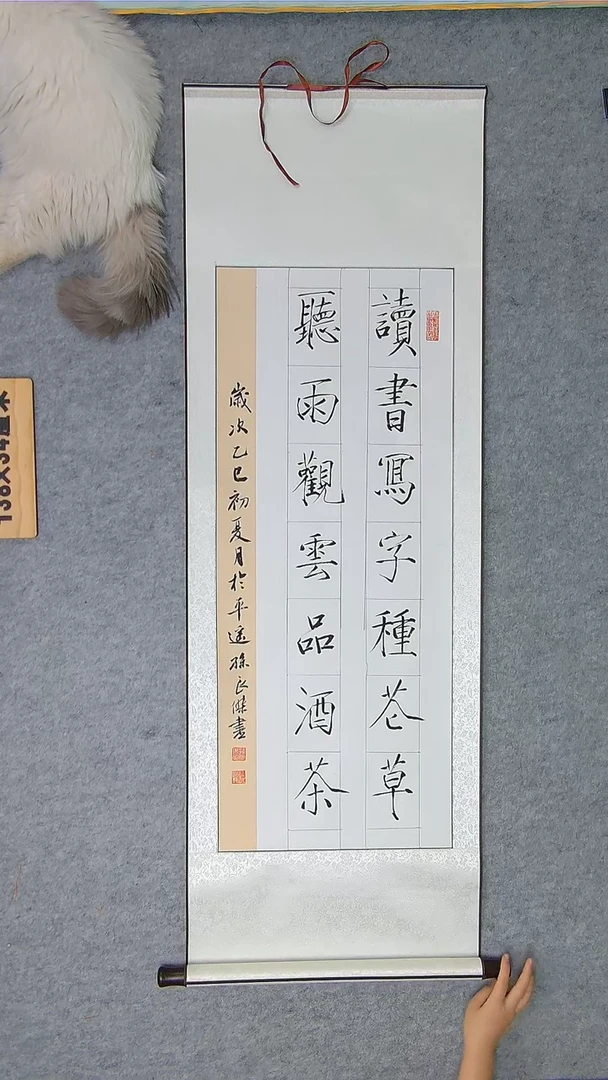 讀書寫字種花草
聽雨觀雲品酒茶
歲次乙巳初夏月於平遙孫良傑書